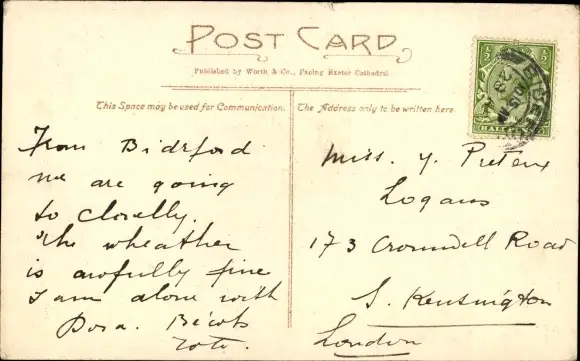 POST CARD
Published by Worth & Co., Facing Exeter Cathedral.
This Space may be used for Communication.
The Address only to be written here
From Bidrford
we are going
to Clovelly.
The wheather
is awfully fine
I am alone with
Dora.
Miss. Y.
Logans
173 Cromwell Road
S. Kensington
London
½ ½
HALF